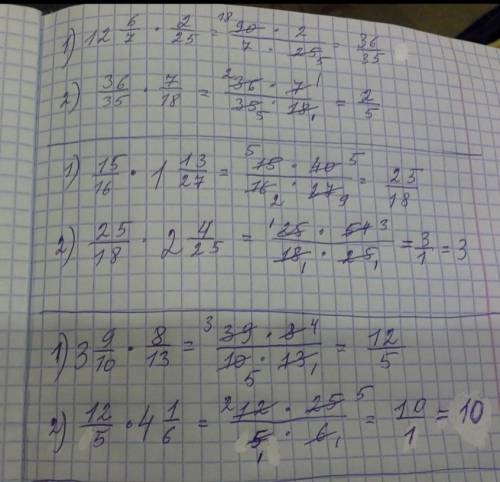 1) 12 6/7 · 2/25 = (18 90 · 2)/(7 · 25 5) = 36/35
2) 36/35 · 7/18 = (2 36 · 7 1)/(35 5 · 18 1) = 2/5
1) 15/16 · 1 13/27 = (5 15 · 40 5)/(16 2 · 27 9) = 25/18
2) 25/18 · 2 4/25 = (1 25 · 54 3)/(18 1 · 25 1) = 3/1 = 3
1) 3 9/10 · 8/13 = (3 39 · 8 4)/(10 5 · 13 1) = 12/5
2) 12/5 · 4 1/6 = (2 12 · 25 5)/(5 1 · 6 1) = 10/1 = 10